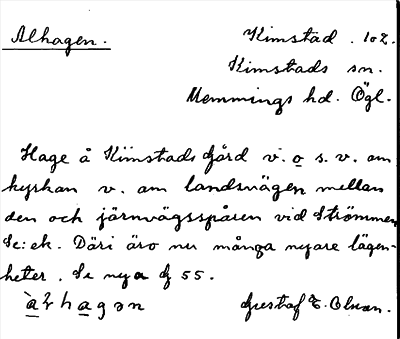 Alhagen. Kimstad. 102.
Kimstads sn.
Memmings hd. Ögl.
Hage å Kimstads gård v. o s. v. om
kyrkan v. om landsvägen mellan
den och järnvägsspåren vid Strömmen
Se: ek. Däri äro nu många nyare lägen-
heter. Se nya 55.
Gustaf E. Olson.